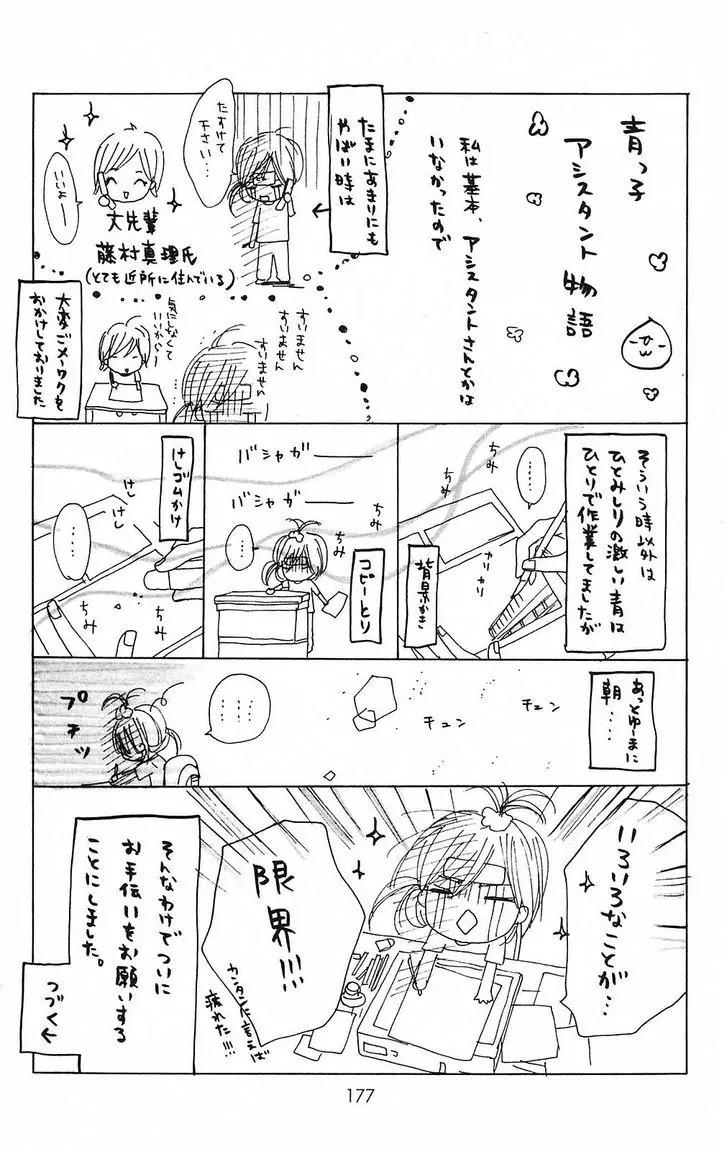 青っ子
アシスタント物語
私は基本、アシスタントさんとかは
いなかったので
たまにあまりにも
やばい時は
たすけて
下さい…
いいよー
大先輩
藤村真理氏
(とても近所に住んでいる)
すいません
すいません
すいません
気にしなくて
いいから〜
大変ごメーワクを
おかけしておりました
そういう時以外は
ひとみしりの激しい青は
ひとりで作業してましたが
ちみ
ちみ
……
カリ
カリ
背景かき
バシャガー
バシャガー
ちみ
ちみ
……
コピーとり
けしゴムかけ
けし
けし
……
ちみ
ちみ
あっとゆーまに
朝……
チュン
チュン
……
プチッ
いろいろなことが…
限界!!!
カンタンに言えば
疲れた!!!!
そんなわけでついに
お手伝いをお願いする
ことにしました。
つづく
177